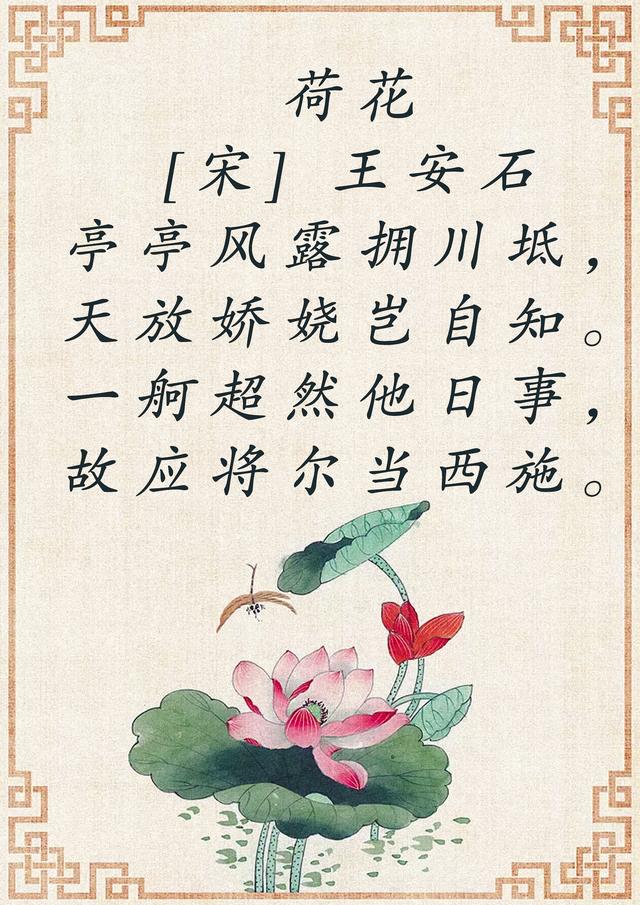 荷花
[宋] 王安石
亭亭风露拥川坻，
天放娇娆岂自知。
一舸超然他日事，
故应将尔当西施。